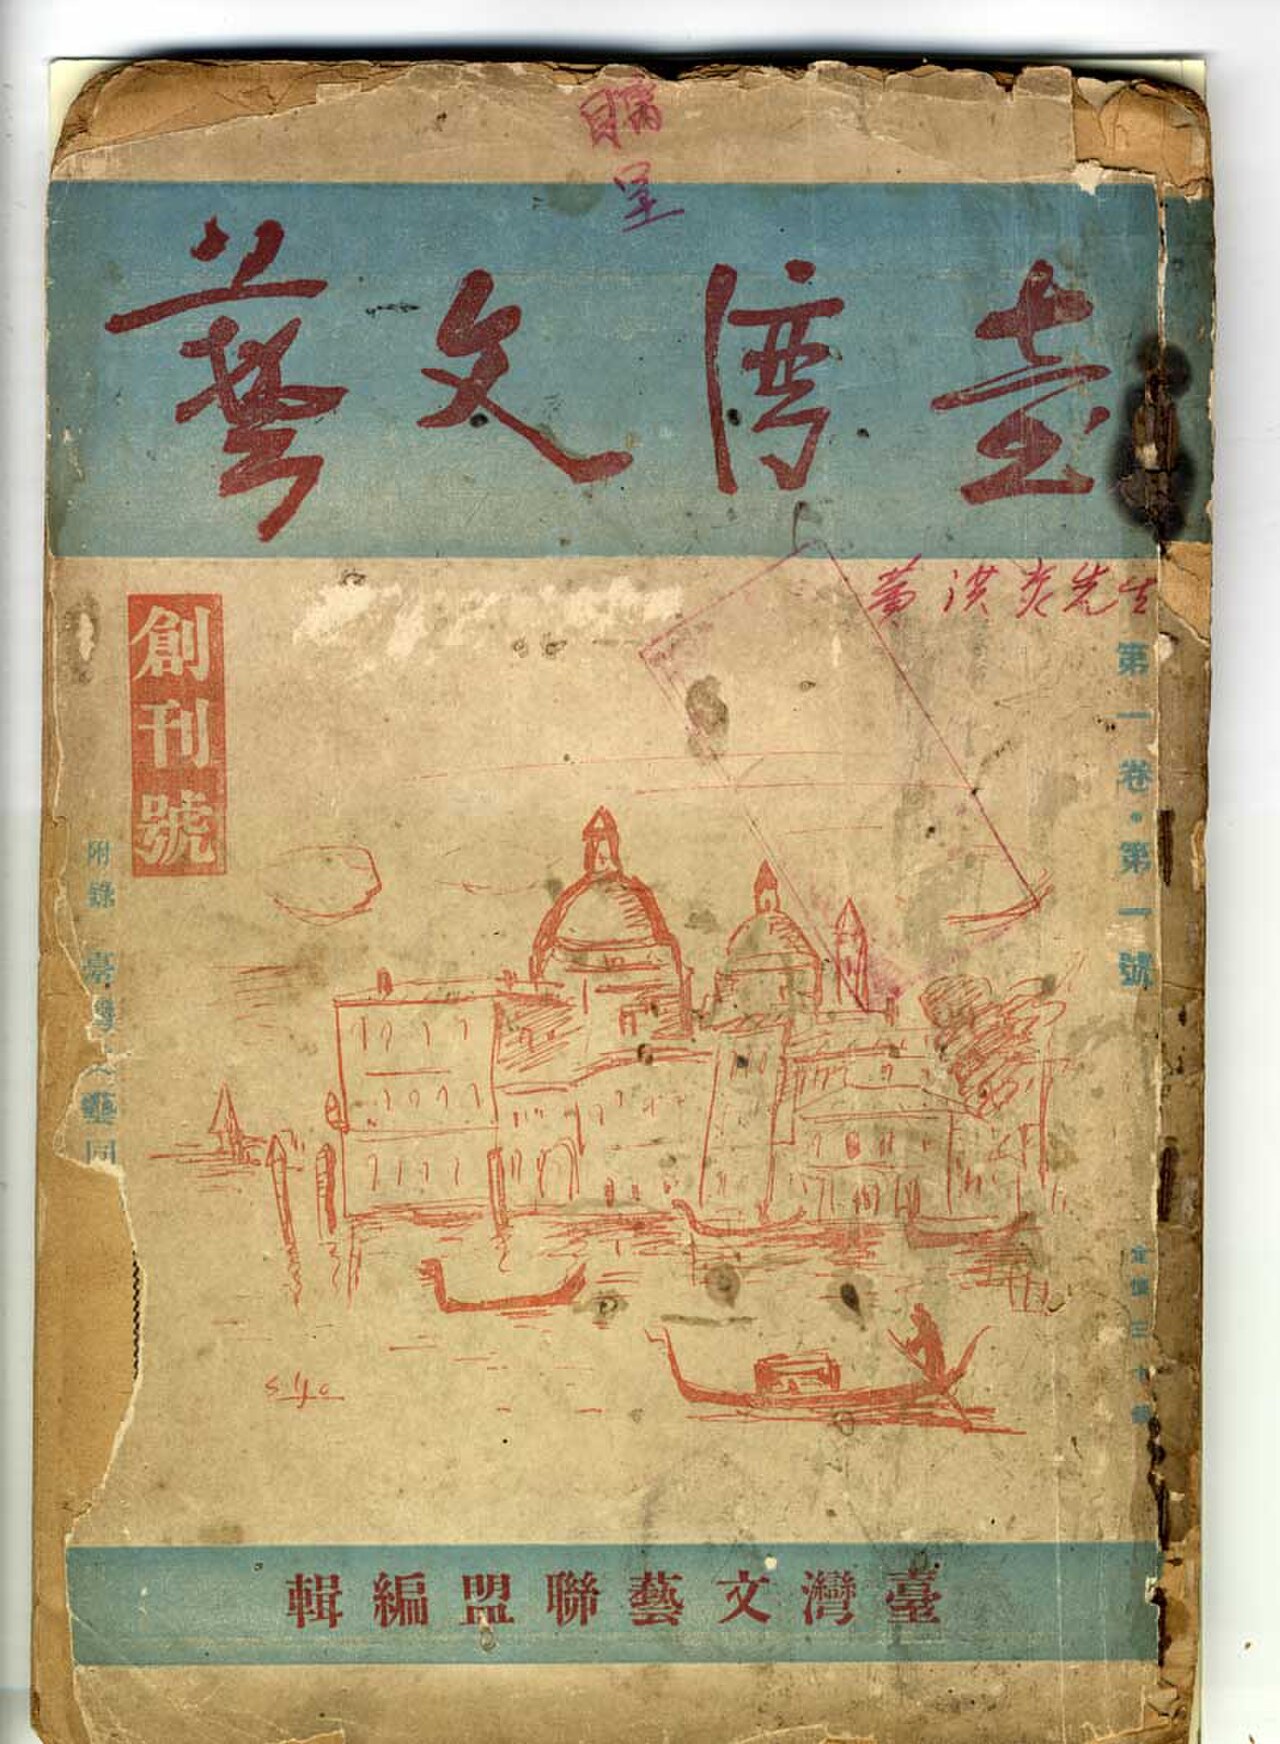 臺灣文藝
黃洪炎先生
第一卷・第一號
定價三十錢
創刊號
附錄 臺灣文藝同
syo
臺灣文藝聯盟編輯